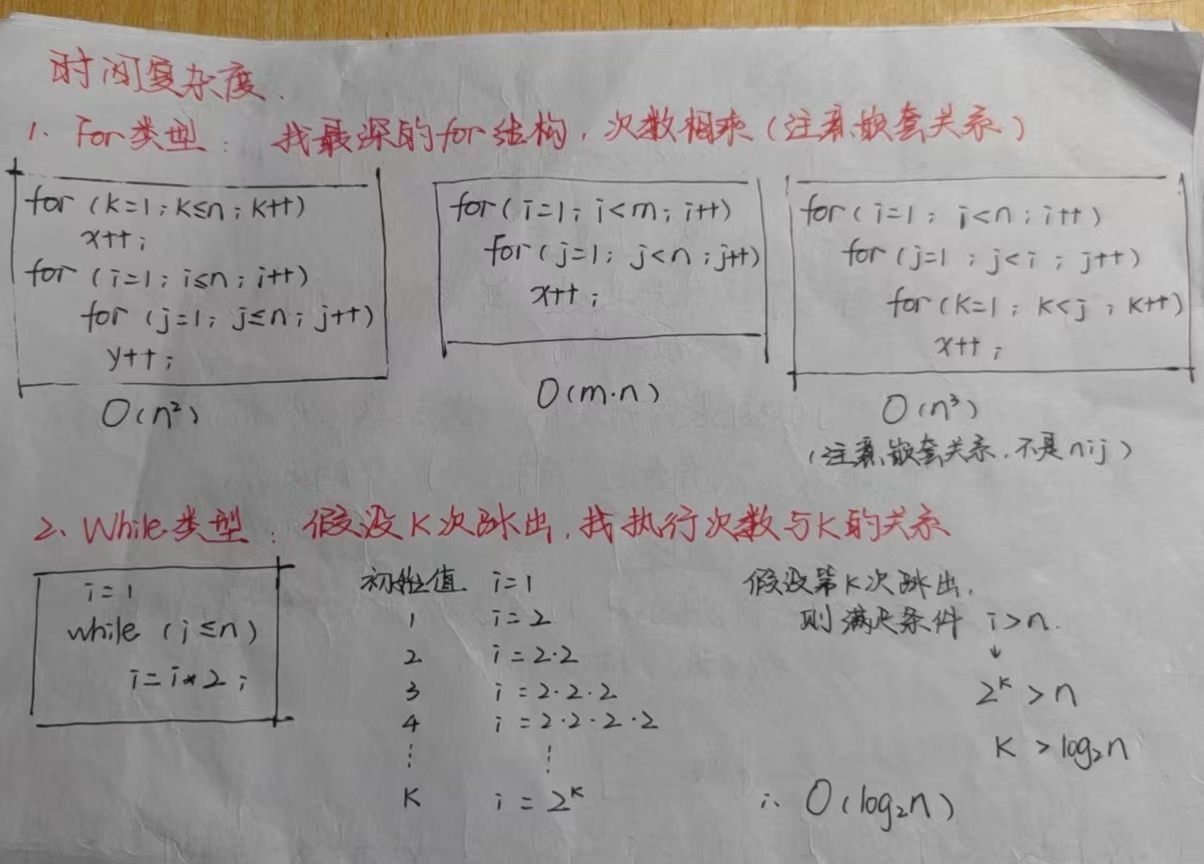 时间复杂度.
1. For类型： 找最深的for结构，次数相乘（注意嵌套关系）
for (k=1;k≤n;k++)
x++;
for (i=1;i≤n;i++)
for (j=1;j≤n;j++)
y++;
O(n²)
for(i=1;i<m;i++)
for(j=1;j<n;j++)
x++;
O(m·n)
for(i=1;i<n;i++)
for(j=1;j<i;j++)
for(k=1;k<j;k++)
x++;
O(n³)
(注意嵌套关系.不是nij)
2、While类型：假设K次跳出，找执行次数与K的关系
i=1
while (i≤n)
i=i*2;
初始值 i=1
1 i=2
2 i=2·2
3 i=2·2·2
4 i=2·2·2·2
⋮ ⋮
K i=2ᴷ
假设第K次跳出，
则满足条件 i>n.
↓
2ᴷ>n
K>log₂n
∴ O(log₂n)